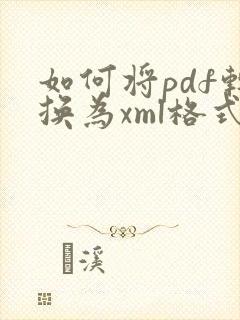 如何将pdf转
换为xml格式
溪